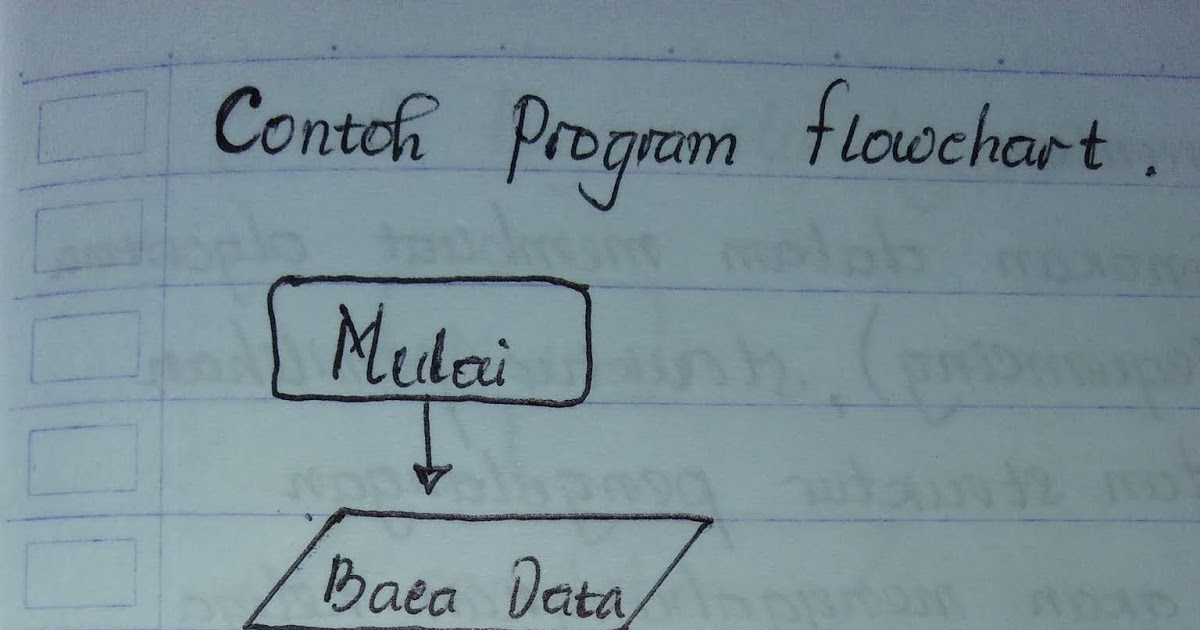 Contoh Program flowchart.
Mulai
Baca Data